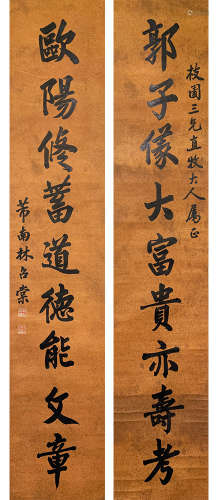 郭子儀大富貴亦壽考
枝園三兄直牧大人屬正
歐陽修蓄道德能文章
芾南林召棠